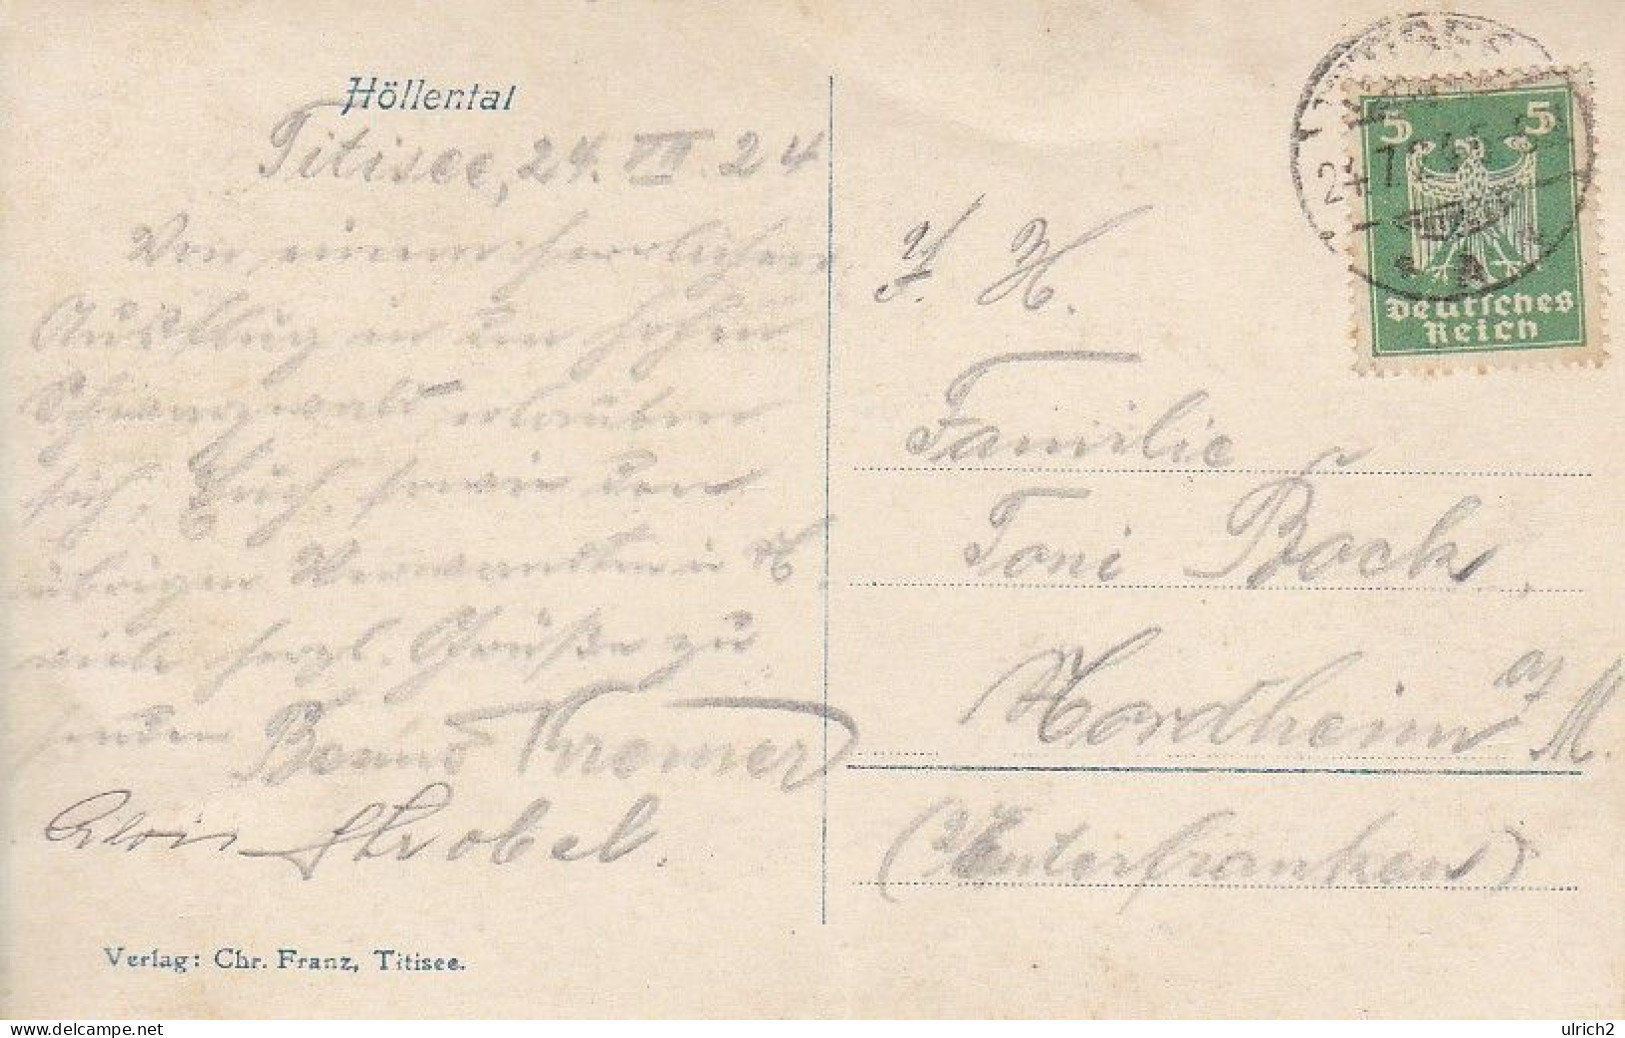 Höllental
Titisee, 24. VII. 24
Von einem herrlichen
Ausflug in den hohen
Schwarzwald erlauben
sich, Euch, sowie den
übrigen Verwandten in N.
viele herzl. Grüße zu
senden Benno Kremer
Alois Strobel.
Verlag: Chr. Franz, Titisee.
TITISEE
24.7.24
A
5 5
Deutsches
Reich
Familie
Toni Bock
Nordheim a/M.
(Unterfranken)
ulrich2
delcampe.net